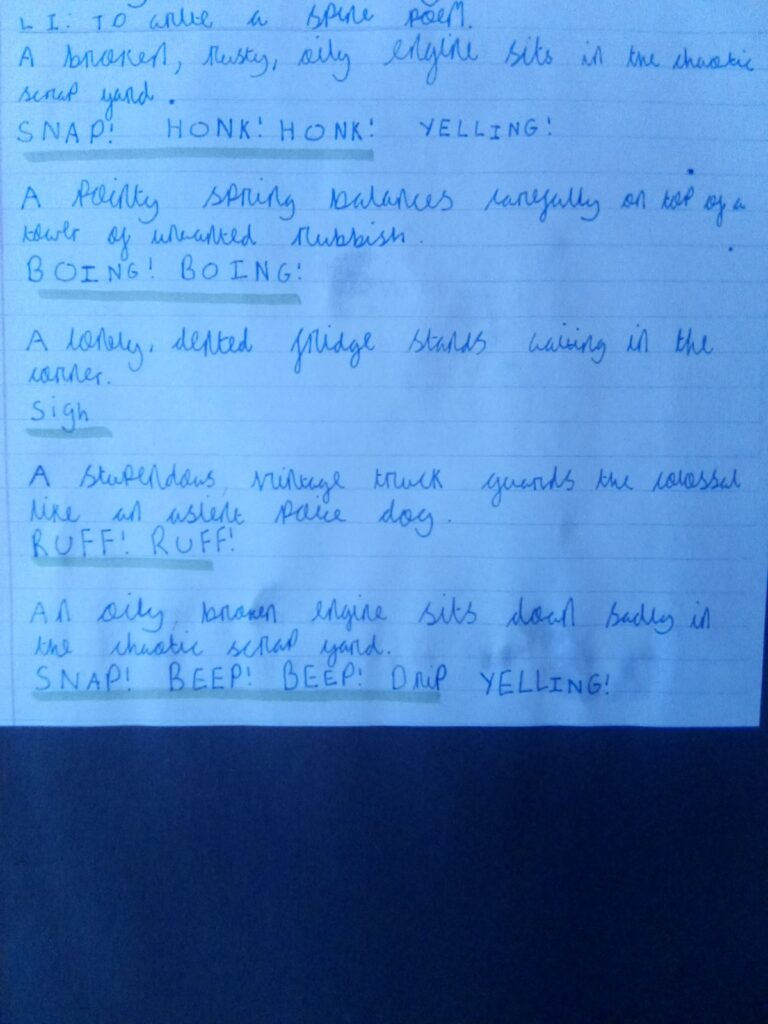 LI: TO write a spine poem.
A broken, rusty, oily engine sits in the chaotic
scrap yard.
SNAP! HONK! HONK! YELLING!
A pointy spring balances carefully on top of a
tower of unwanted rubbish.
BOING! BOING!
A lonely, dented fridge stands waiting in the
corner.
Sigh
A stupendous, vintage truck guards the colossal
like an aslent police dog.
RUFF! RUFF!
An oily, broken engine sits down sadly in
the chaotic scrap yard.
SNAP! BEEP! BEEP! Drip YELLING!